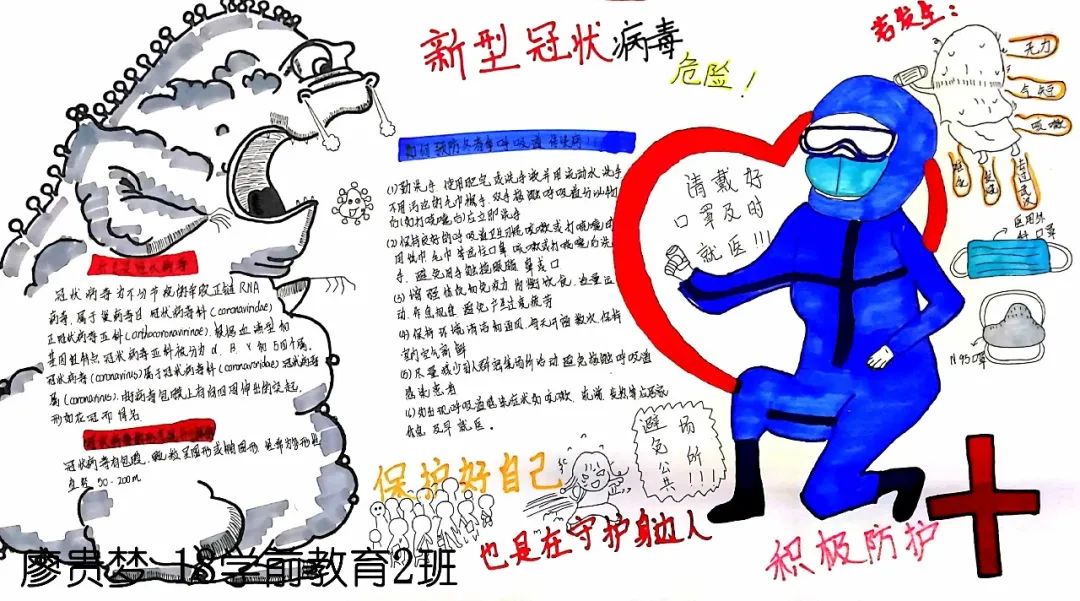 新型冠状病毒
危险！
若发生：
无力
气短
咳嗽
去过武汉
医用外
科口罩
N95罩
请戴好
口罩及时
就医!!!
冠状病毒为不分节段的单股正链RNA
病毒，属于巢病毒目冠状病毒科(coronavindae)
正冠状病毒亚科(orthocoronavirinae)，根据血清型和
基因组特点冠状病毒亚科被分为α、β、γ和δ四个属。
冠状病毒(coronavirus)属于冠状病毒科(coronaviridae)冠状病毒
属(coronavirus)，由病毒包膜上有向四周伸出的突起，
形如花冠而得名
冠状病毒有包膜，颗粒呈圆形或椭圆形
直径50-200m
(1)勤洗手 使用肥皂或洗手液并用流动水洗手
不用污浊的毛巾擦手，双手接触呼吸道分泌物
后(如打喷嚏后)应立即洗手
(2)保持良好的呼吸道卫生习惯 咳嗽或打喷嚏时
用纸巾毛巾等遮住口鼻 咳嗽或打喷嚏后洗
手，避免用手触摸眼睛鼻或口
(3)增强体质和免疫力 均衡饮食，适量运
动，作息规律 避免产生过度疲劳
(4)保持环境清洁和通风 每天开窗数次，保持
室内空气新鲜
(5)尽量减少到人群密集场所活动 避免接触呼吸道
感染患者
(6)如出现呼吸道感染症状如咳嗽 流涕 发热等应居家
休息 及早就医。
避免公共
场所!!!
保护好自己
也是在守护身边人
积极防护
廖贵梦 18学前教育2班